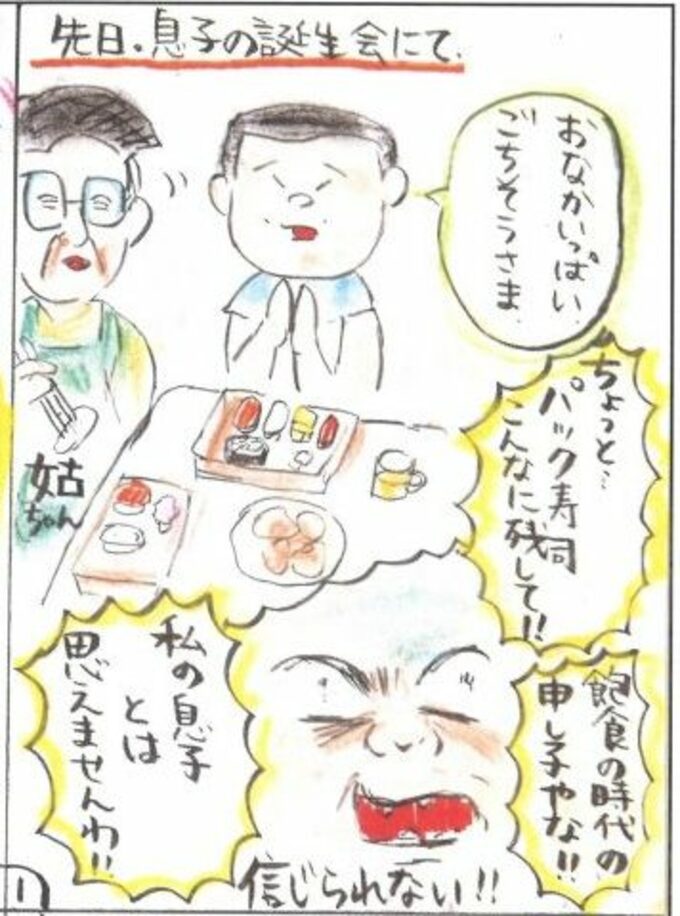 先日。息子の誕生会にて。
おなかいっぱい。
ごちそうさま。
ちょっと…
パック寿司
こんなに残して!!
姑
ちゃん
飽食の時代の
申し子やな!!
私の息子
とは
思えませんわ!!
信じられない!!
1